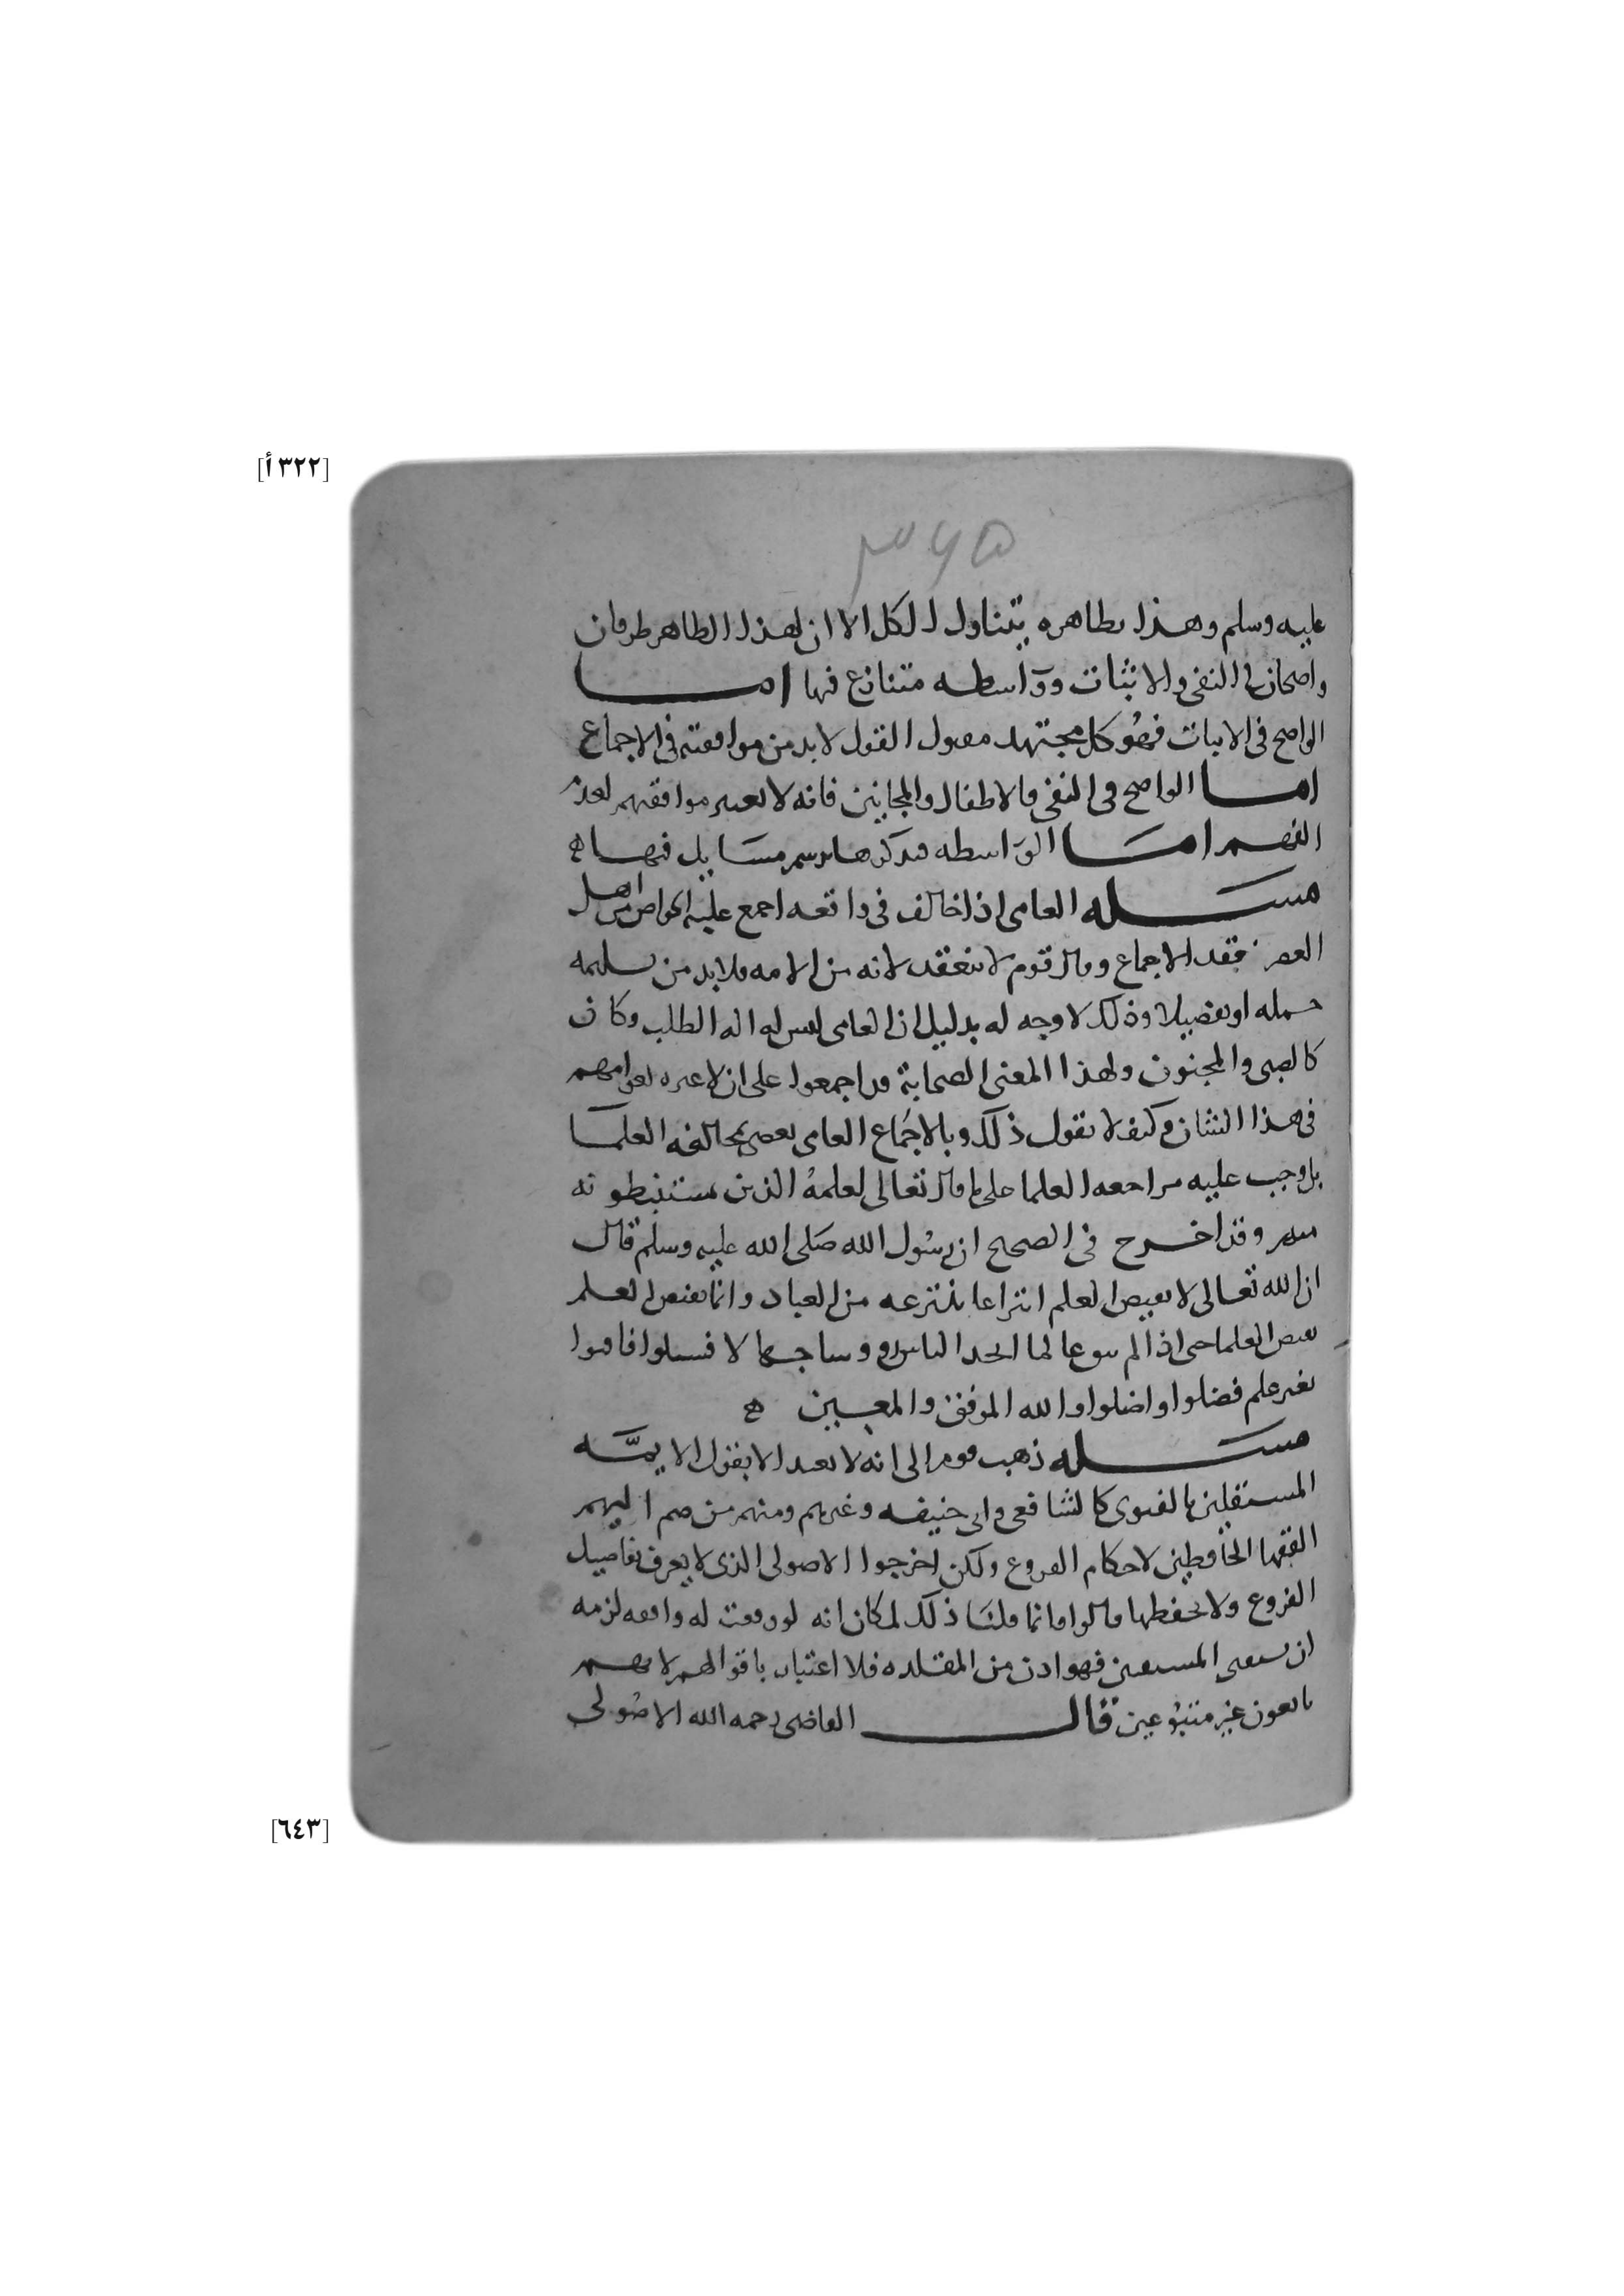 [٣٢٢ أ]
٣٦٥
عليه وسلم وهذا بظاهره يتناول الكل الا ان لهذا الظاهر طرفان
واضحان في النفي والاثبات وواسطه متنازع فيها اما
الواضح في الاثبات فهو كل مجتهد مقبول القول لا بد من موافقته في الاجماع
اما الواضح في النفي فالاطفال والمجانين فانه لا يعتبر موافقتهم لعدم
الفهم اما الواسطه فنذكرها برسم مسايل فيها ه
مسله العامي اذا خالف في واقعه اجمع عليه الخواص من اهل
العصر فقد الاجماع وقال قوم لا ينعقد لانه من الامه فلا بد من تسليمه
جمله او تفصيلا وذلك لا وجه له بدليل ان العامي ليس له اله الطلب وكان
كالصبي والمجنون ولهذا المعنى الصحابة قد اجمعوا على ان لا عبره لعوامهم
في هذا الشان وكيف لا نقول ذلك وبالاجماع العامي يعصي بمخالفه العلما
بل وجب عليه مراجعه العلما على ما قال تعالى لعلمه الذين يستنبطونه
منهم وقد اخرج في الصحيح ان رسول الله صلى الله عليه وسلم قال
ان الله تعالى لا يقبض العلم انتزاعا ينتزعه من العباد وانما يقبض العلم
بقبض العلما حتى اذا لم يبق عالما اتخذ الناس رووسا جهالا فسيلوا فافتوا
بغير علم فضلوا واضلوا والله الموفق والمعين ه
مسله ذهب قوم الى انه لا يعتد الا بقول الايمه
المستقلين بالفتوى كالشافعي وابي حنيفه وغيرهم ومنهم من ضم اليهم
الفقها الحافظين لاحكام الفروع ولكن اخرجوا الاصولي الذي لا يعرف تفاصيل
الفروع ولا يحفظها قالوا وانما قلنا ذلك لمكان انه لو وقعت له واقعه لزمه
ان يستفتي المستفتين فهو اذن من المقلده فلا اعتبار باقوالهم لانهم
تابعون غير متبوعين قال القاضي رحمه الله الاصولي
[٦٤٣]